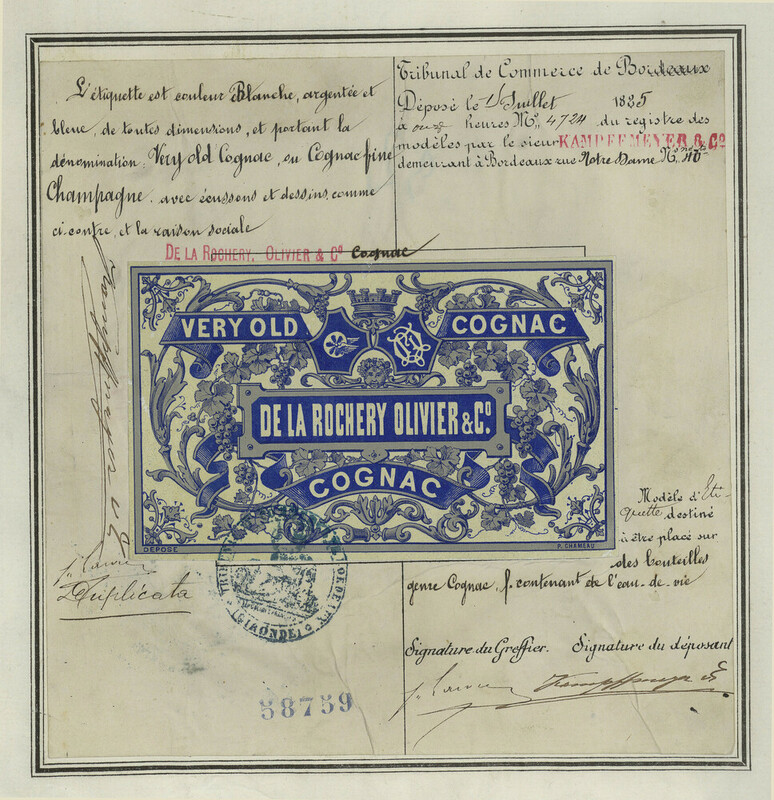 L'étiquette est couleur Blanche, argentée et
bleue, de toutes dimensions, et portant la
dénomination: Very old Cognac, ou Cognac fine
Champagne. avec écussons et dessins, comme
ci-contre, et la raison sociale
DE LA ROCHERY, OLIVIER & Cº Cognac
Tribunal de Commerce de Bordeaux
Déposé le 1 Juillet 1885
à onze heures Nº 4724 du registre des
modèles par le sieur KAMPFFMEYER & Cº
demeurant à Bordeaux rue Notre Dame Nº
VERY OLD COGNAC
DE LA ROCHERY OLIVIER & Cº.
COGNAC
DÉPOSÉ
P. CHAMEAU
Kampffmeyer & Cº
Duplicata
GIRONDE
58759
Modèle d'Eti-
quette destiné
à être placé sur
des bouteilles
genre Cognac, contenant de l'eau-de-vie
Signature du Greffier. Signature du déposant
Kampffmeyer & Cº